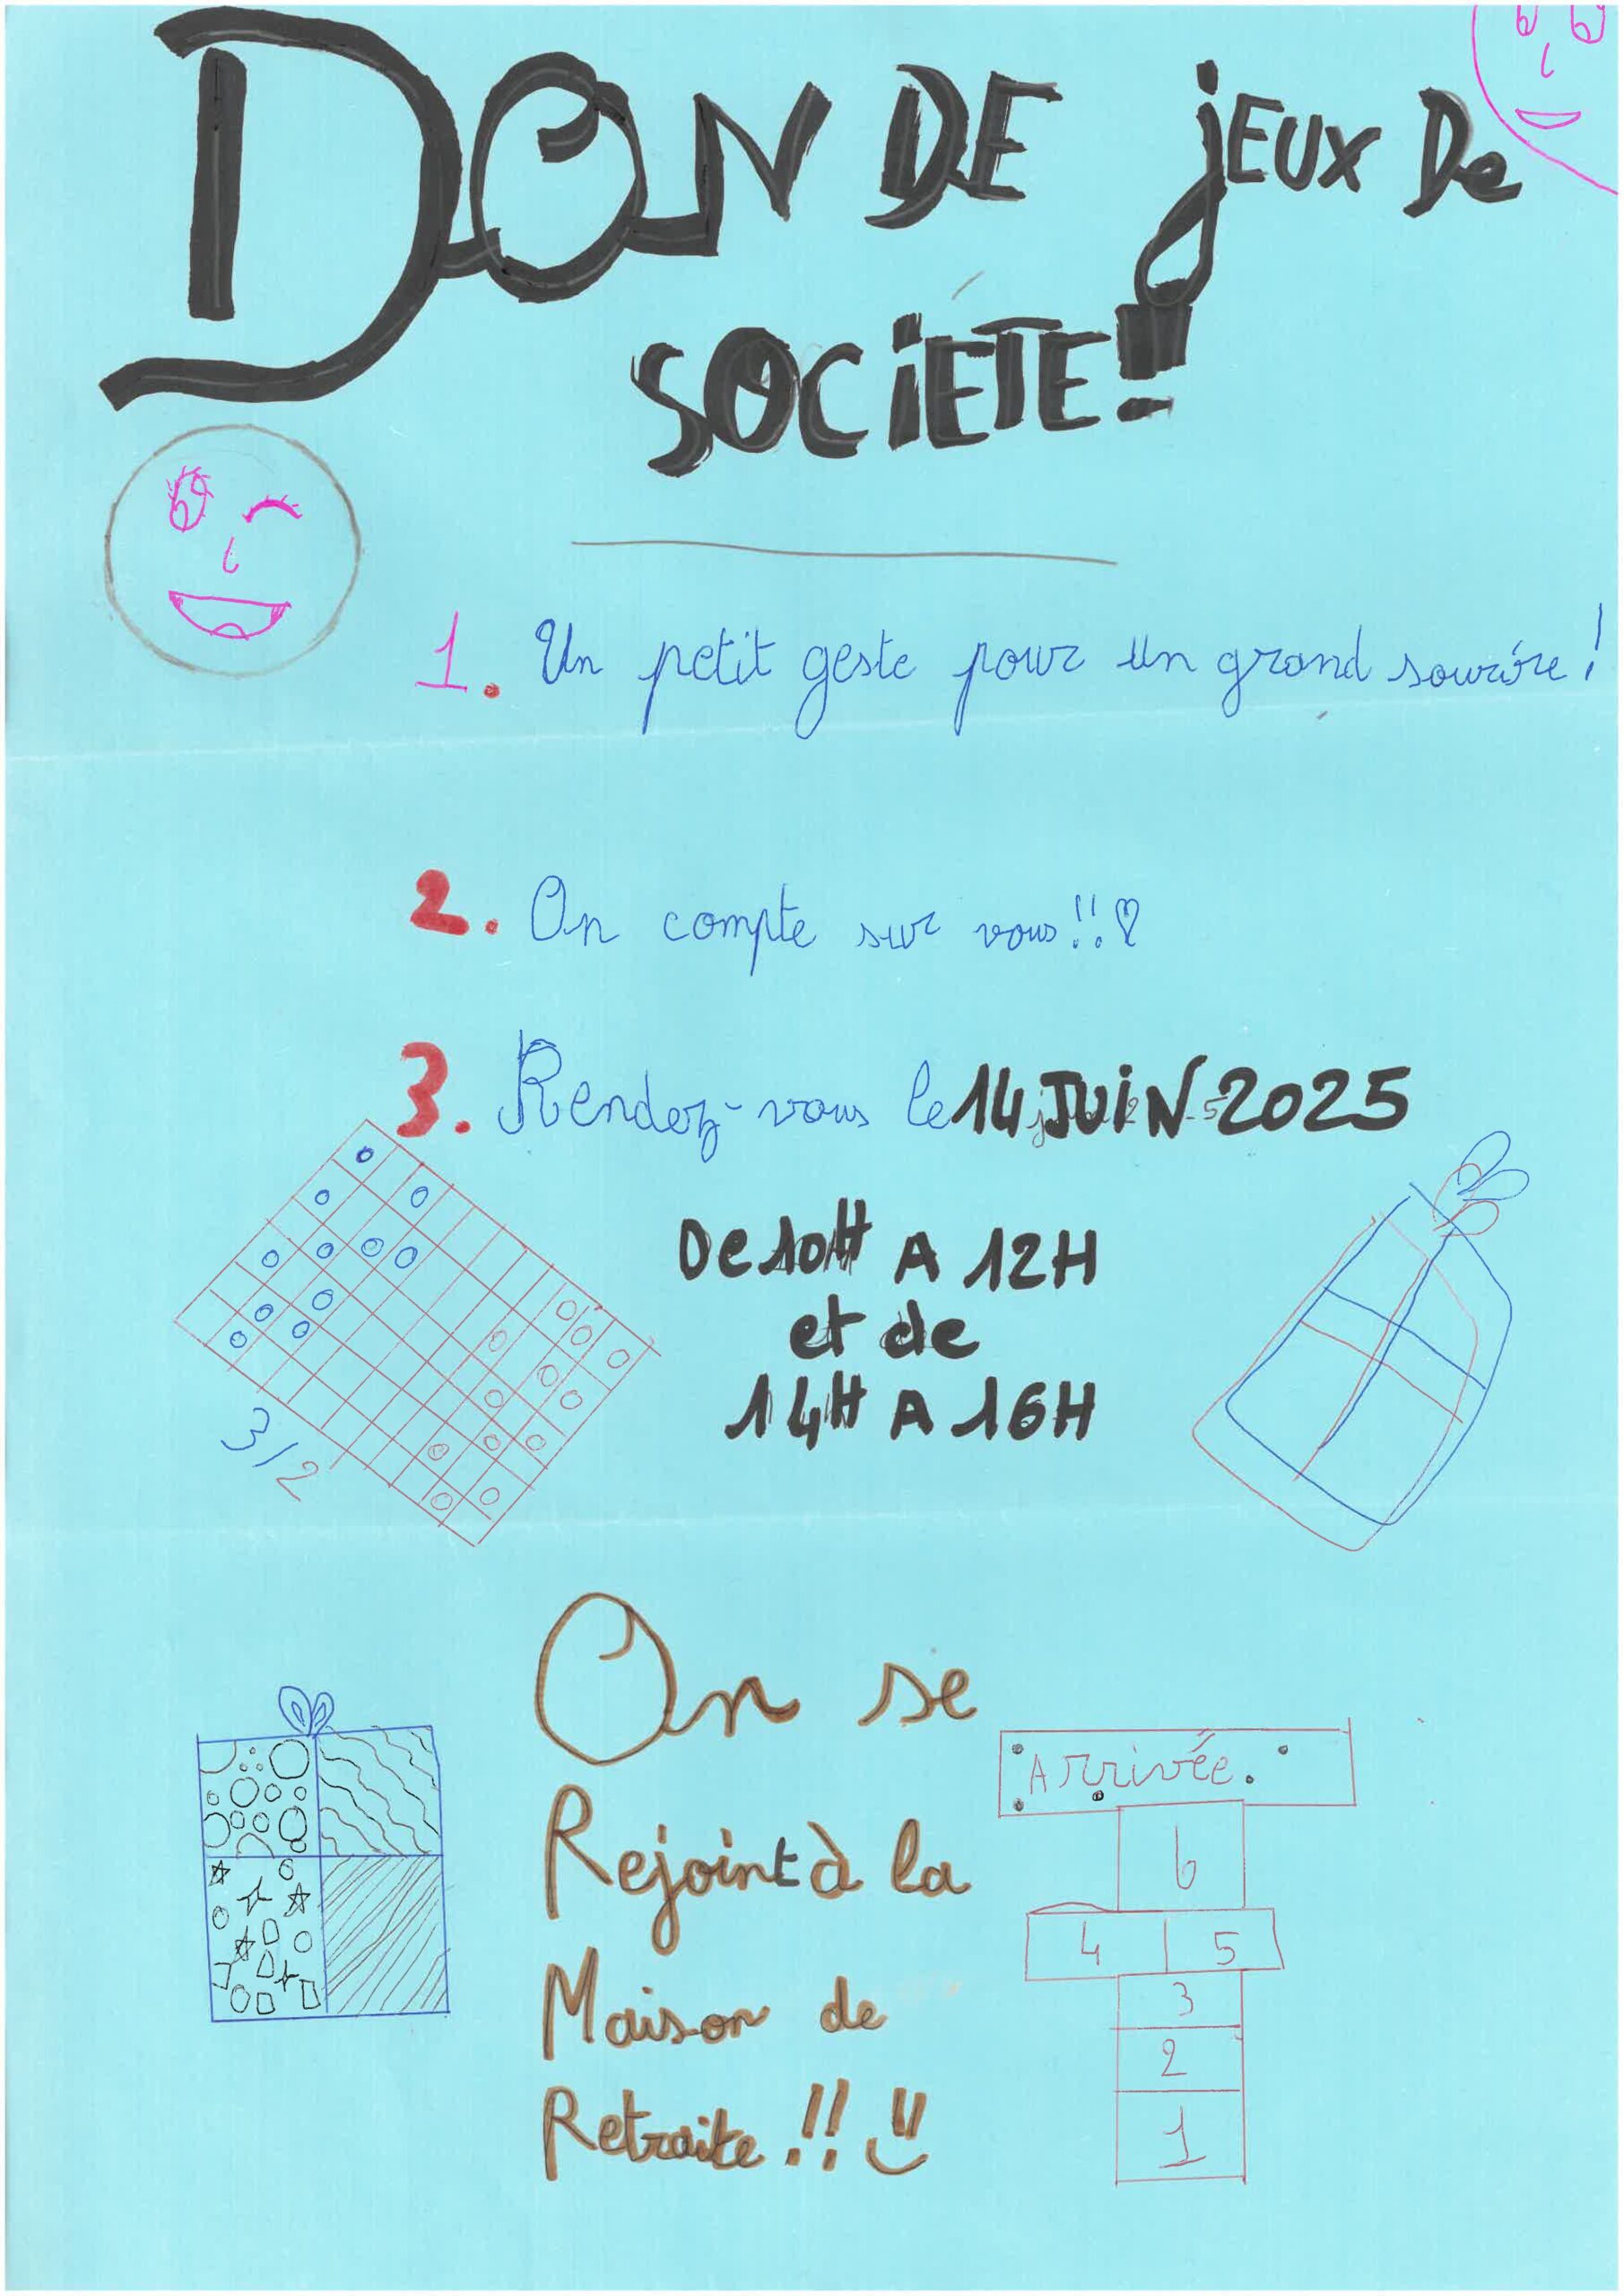 DON DE jEUX De
SOCIETE!!
1. Un petit geste pour un grand sourire!
2. On compte sur vous!!♡
3. Rendez-vous le 14 JUiN 2025
De 10H A 12H
et de
14H A 16H
3/2
On se
Rejoint à la
Maison de
Retraite!!
Arrivée.
6
4 5
3
2
1